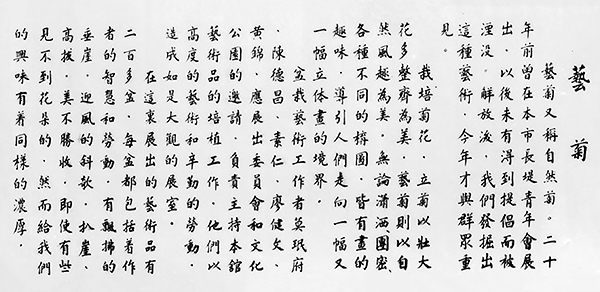 藝菊
藝菊又稱自然菊。二十
年前曾在本市長堤青年會展
出，以後未有得到提倡而被
湮没。解放後，我們發掘出
這種藝術，今年才與群眾重
見。
栽培菊花，立菊以壯大
花多整齊為美，藝菊則以自
然風趣為美，無論瀟洒團密，
各種不同的構圖，皆有畫的
趣味，導引人們走向一幅又
一幅立体畫的境界。
盆栽藝術工作者莫珉府
、陳德昌、素仁、廖健文、
黃錦，應展出委員會和文化
公園的邀請，負責主持本館
藝術品的培植工作，他們以
高度的藝術和辛勤的勞動，
造成如是大觀的展室。
在這裏展出的藝術品有
二百多盆，每盆都包括着作
者的智慧和勞動，有飄拂的
垂崖，迎風的斜欹，扒崖、
高拔，美不勝收，即使有些
見不到花朵的，然而給我們
的興味有着同樣的濃厚。